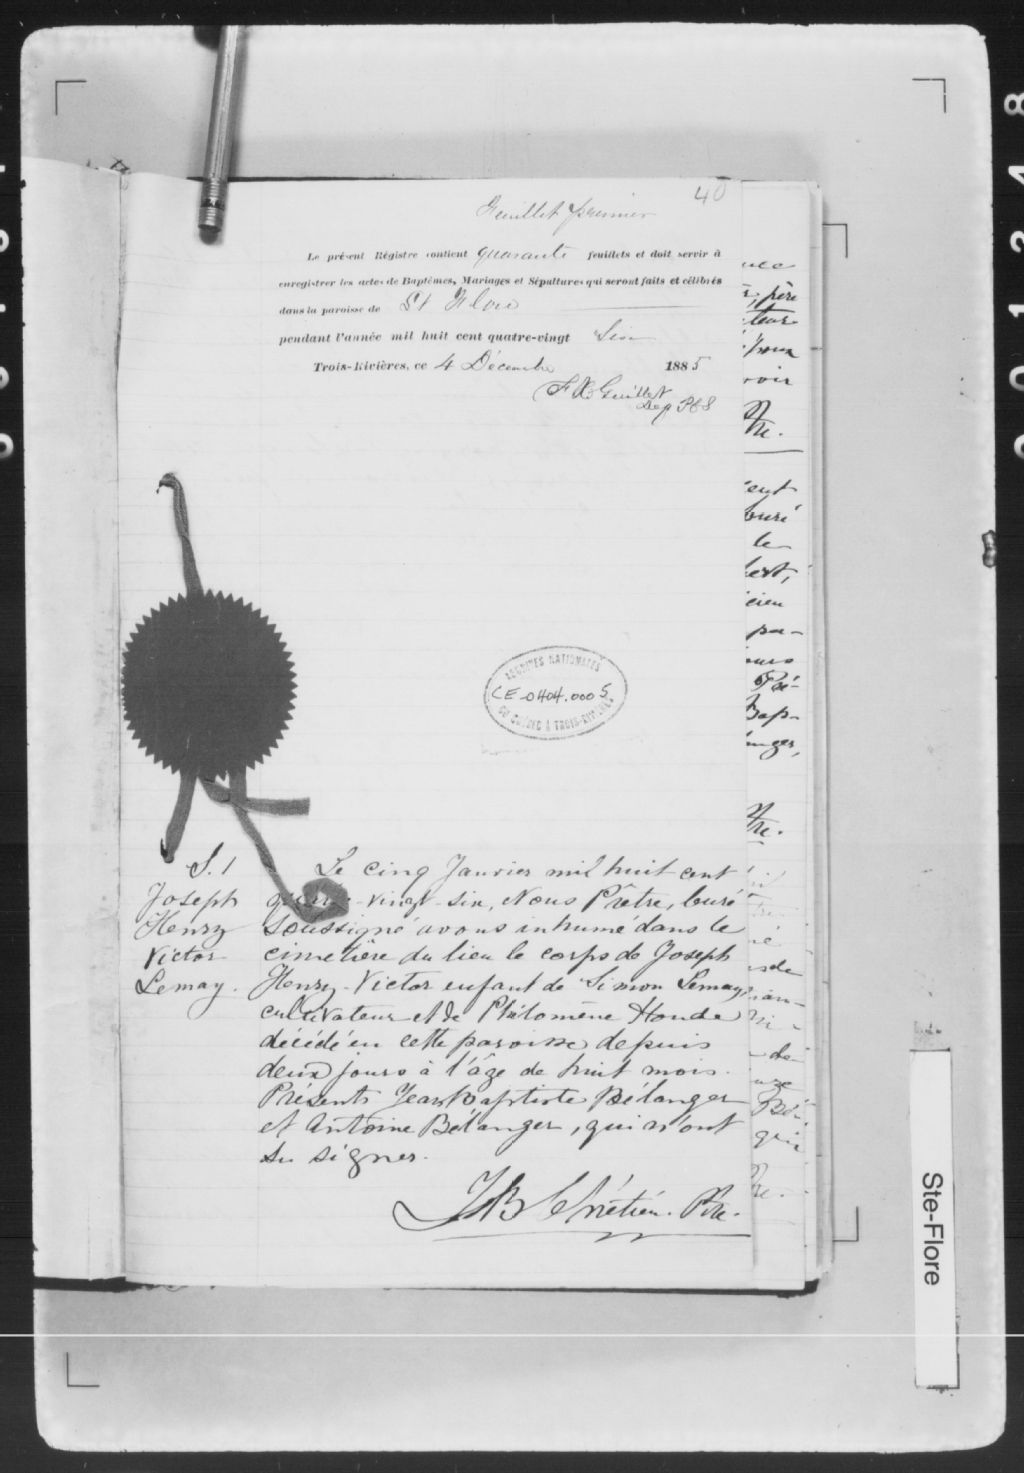 40
Feuillet premier
Le présent Régistre contient quarante feuillets et doit servir à
enregistrer les actes de Baptêmes, Mariages et Sépultures qui seront faits et célébrés
dans la paroisse de St Flore
pendant l'année mil huit cent quatre-vingt Six
Trois-Rivières, ce 4 Décembre 1885
F X Guillet
Dep P C S
ARCHIVES NATIONALES
CE-0404.0005
DU QUÉBEC À TROIS-RIVIÈRES
S. 1
Joseph
Henry
Victor
Lemay.
Le cinq Janvier mil huit cent
quatre-vingt-six, Nous Prêtre, Curé
Soussigné avons inhumé dans le
cimetière du lieu le corps de Joseph
Henry-Victor enfant de Simon Lemay,
cultivateur et de Philomène Houde
décédé en cette paroisse depuis
deux jours à l'âge de huit mois.
Présents Jean Baptiste Bélanger
et Antoine Bélanger, qui n'ont
su signer.
J B Chrétien. Ptre.
père
cteur
voir
Ptre.
cent
Curé
le
bert,
cien
pa-
Bap-
anger,
Ptre.
de
Ste-Flore